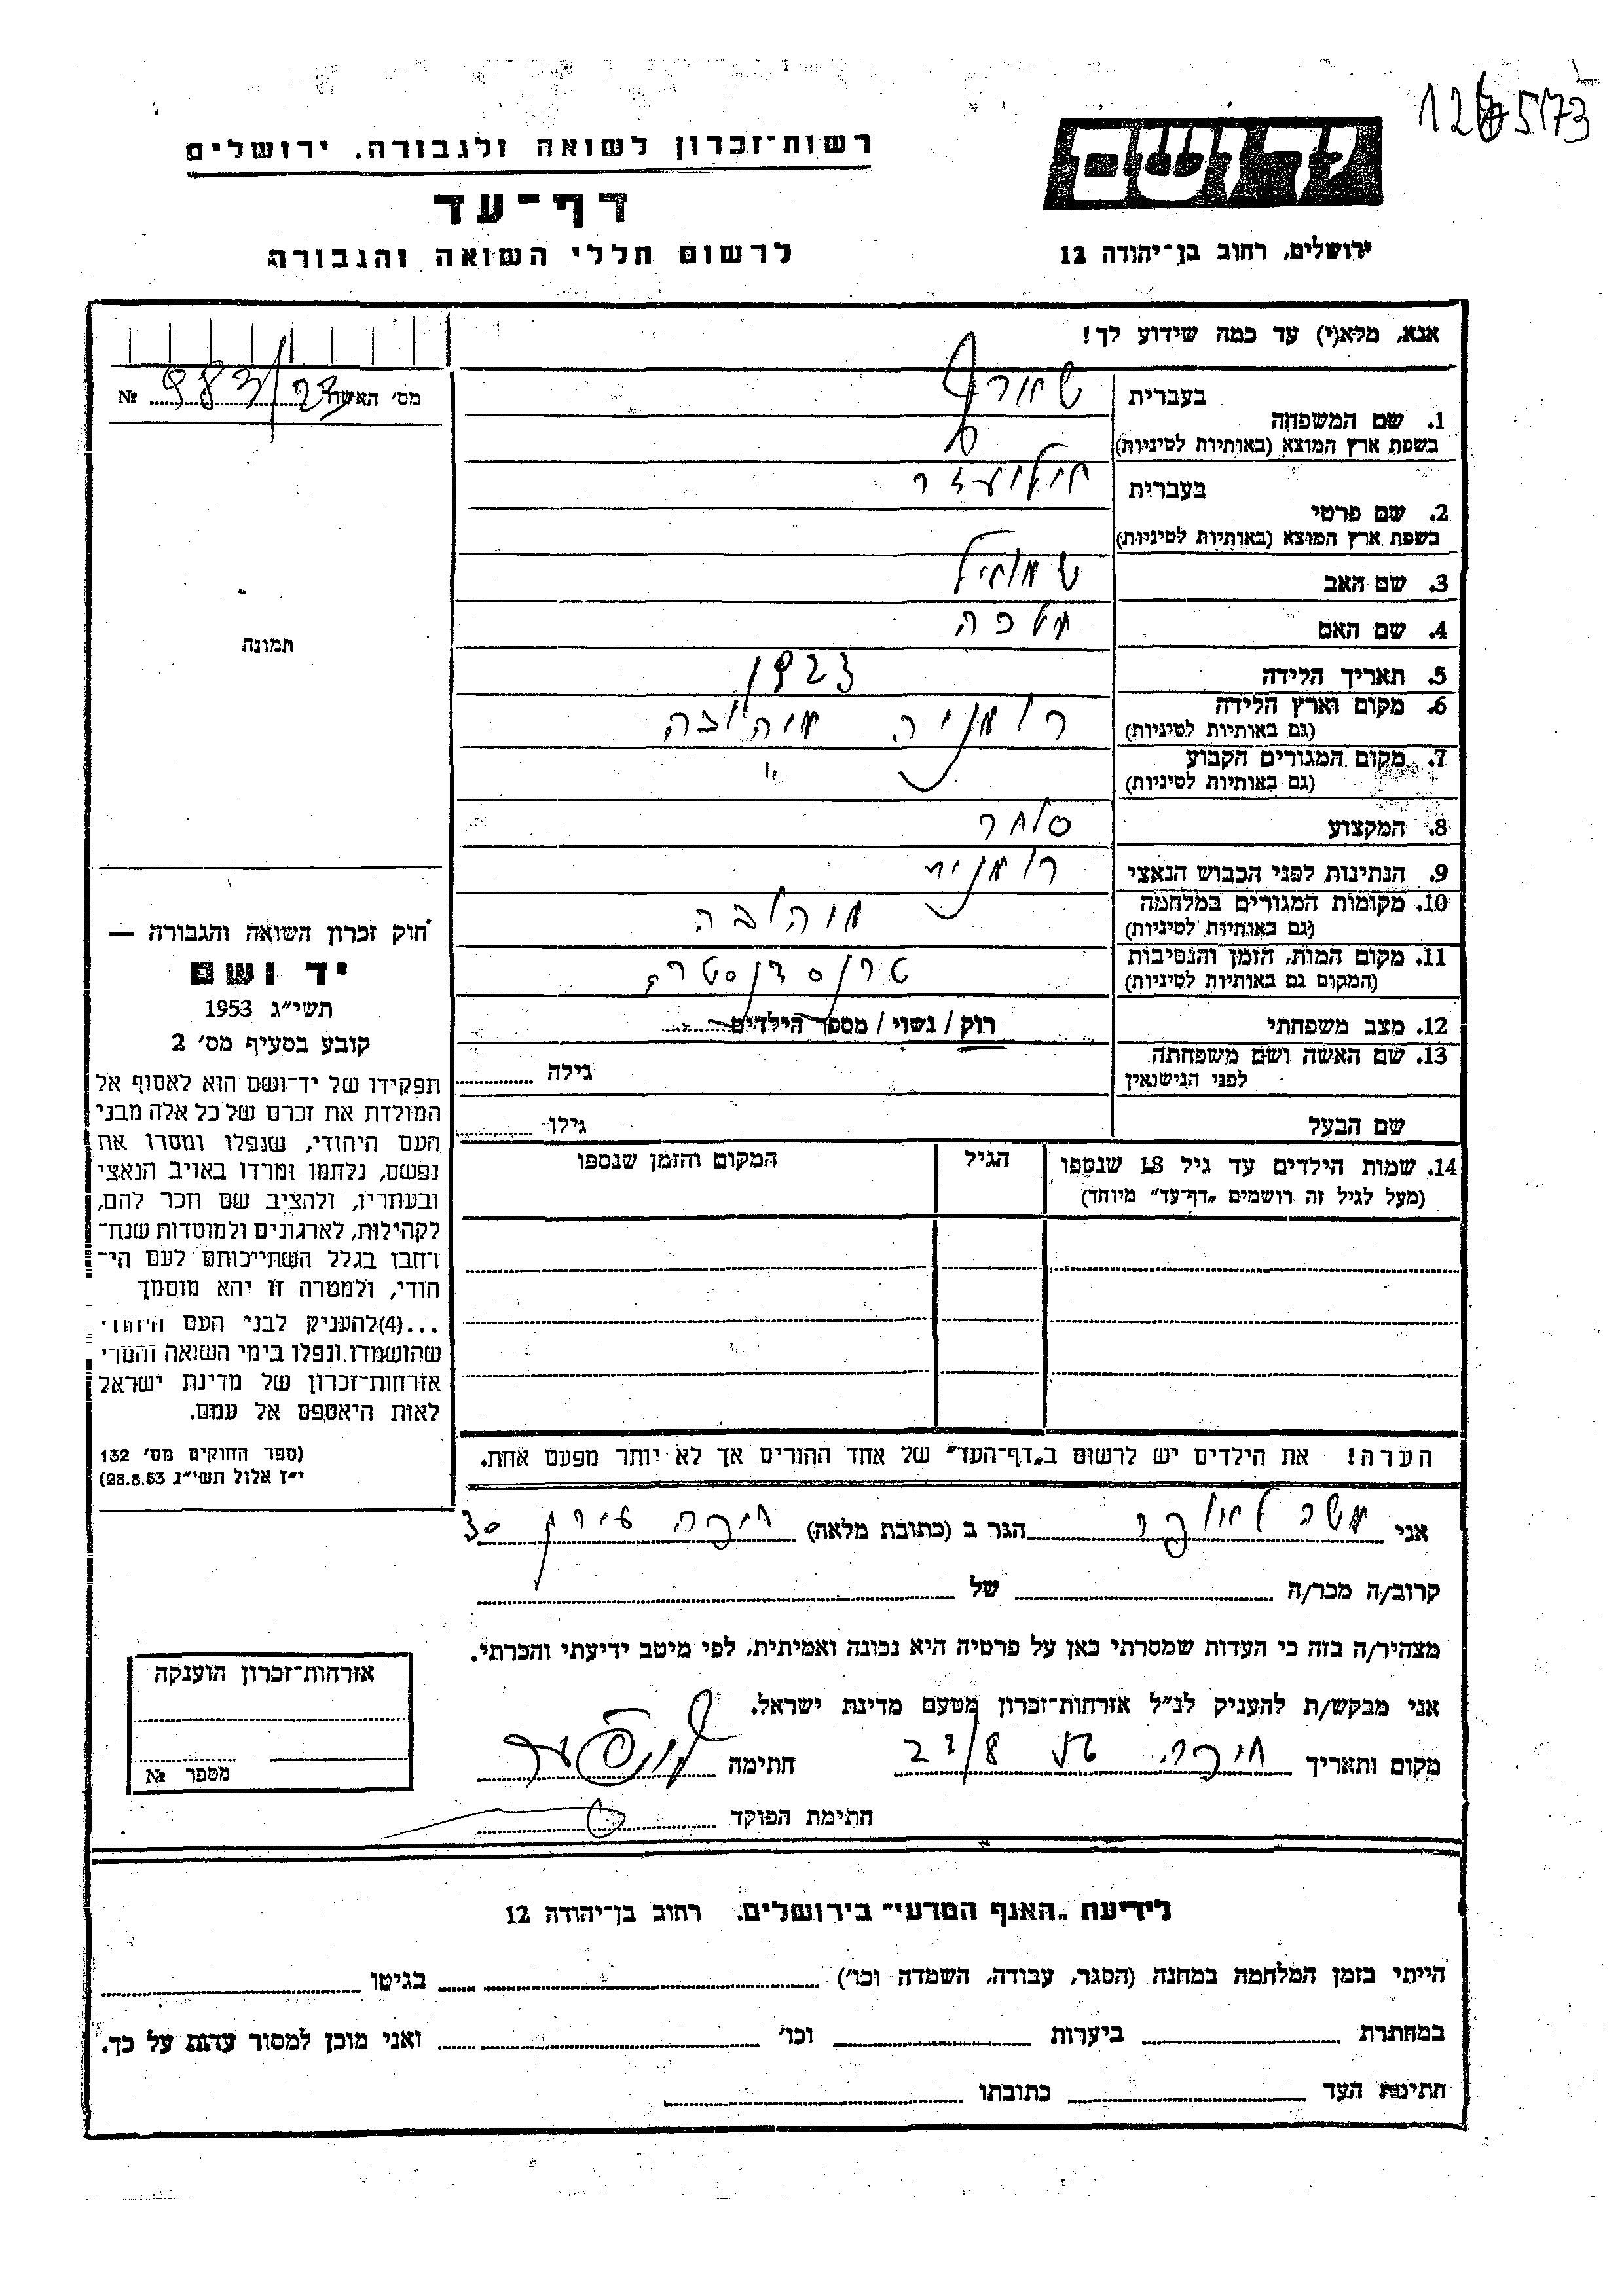 רשות־זכרון לשואה ולגבורה. ירושלים
דף־עד
לרשום חללי השואה והגבורה
יד ושם
ירושלים, רחוב בן־יהודה 12
אנא, מלא(י) עד כמה שידוע לך!
מס׳ האשה № 983/23
1. שם המשפחה בעברית
בשפת ארץ המוצא (באותיות לטיניות)
2. שם פרטי בעברית
בשפת ארץ המוצא (באותיות לטיניות)
3. שם האב שמואל
4. שם האם מלכה
5. תאריך הלידה 1923
6. מקום וארץ הלידה רומניה
(גם באותיות לטיניות)
7. מקום המגורים הקבוע "
(גם באותיות לטיניות)
8. המקצוע סוחר
9. הנתינות לפני הכבוש הנאצי רומנית
10. מקומות המגורים במלחמה
(גם באותיות לטיניות)
11. מקום המות, הזמן והנסיבות
(המקום גם באותיות לטיניות)
12. מצב משפחתי רוק / נשוי / מספר הילדים
13. שם האשה ושם משפחתה גילה
לפני הנישואין
שם הבעל גילו
14. שמות הילדים עד גיל 18 שנספו הגיל המקום והזמן שנספו
(מעל לגיל זה רושמים „דף־עד” מיוחד)
הערה! את הילדים יש לרשום ב„דף־העד” של אחד ההורים אך לא יותר מפעם אחת.
תמונה
חוק זכרון השואה והגבורה —
יד ושם
תשי״ג 1953
קובע בסעיף מס׳ 2
תפקידו של יד־ושם הוא לאסוף אל
המולדת את זכרם של כל אלה מבני
העם היהודי, שנפלו ומסרו את
נפשם, נלחמו ומרדו באויב הנאצי
ובעוזריו, ולהציב שם וזכר להם,
לקהילות, לארגונים ולמוסדות שנח־
רחבו בגלל השתייכותם לעם הי־
הודי, ולמטרה זו יהא מוסמך
...(4)להעניק לבני העם היהודי
שהושמדו ונפלו בימי השואה והמרי
אזרחות־זכרון של מדינת ישראל
לאות היאספם אל עמם.
(ספר החוקים מס׳ 132
י״ז אלול תשי״ג 28.8.53)
אני משה הגר ב (כתובת מלאה) חיפה 30
קרוב/ה מכר/ה של
מצהיר/ה בזה כי העדות שמסרתי כאן על פרטיה היא נכונה ואמיתית, לפי מיטב ידיעתי והכרתי.
אני מבקש/ת להעניק לנ״ל אזרחות־זכרון מטעם מדינת ישראל.
מקום ותאריך חיפה חתימה
חתימת הפוקד
אזרחות־זכרון הוענקה
מספר №
לידיעת „האגף המדעי” בירושלים. רחוב בן־יהודה 12
הייתי בזמן המלחמה במחנה (הסגר, עבודה, השמדה וכו׳) בגיטו
במחתרת ביערות וכו׳ ואני מוכן למסור עדות על כך.
חתימת העד כתובתו